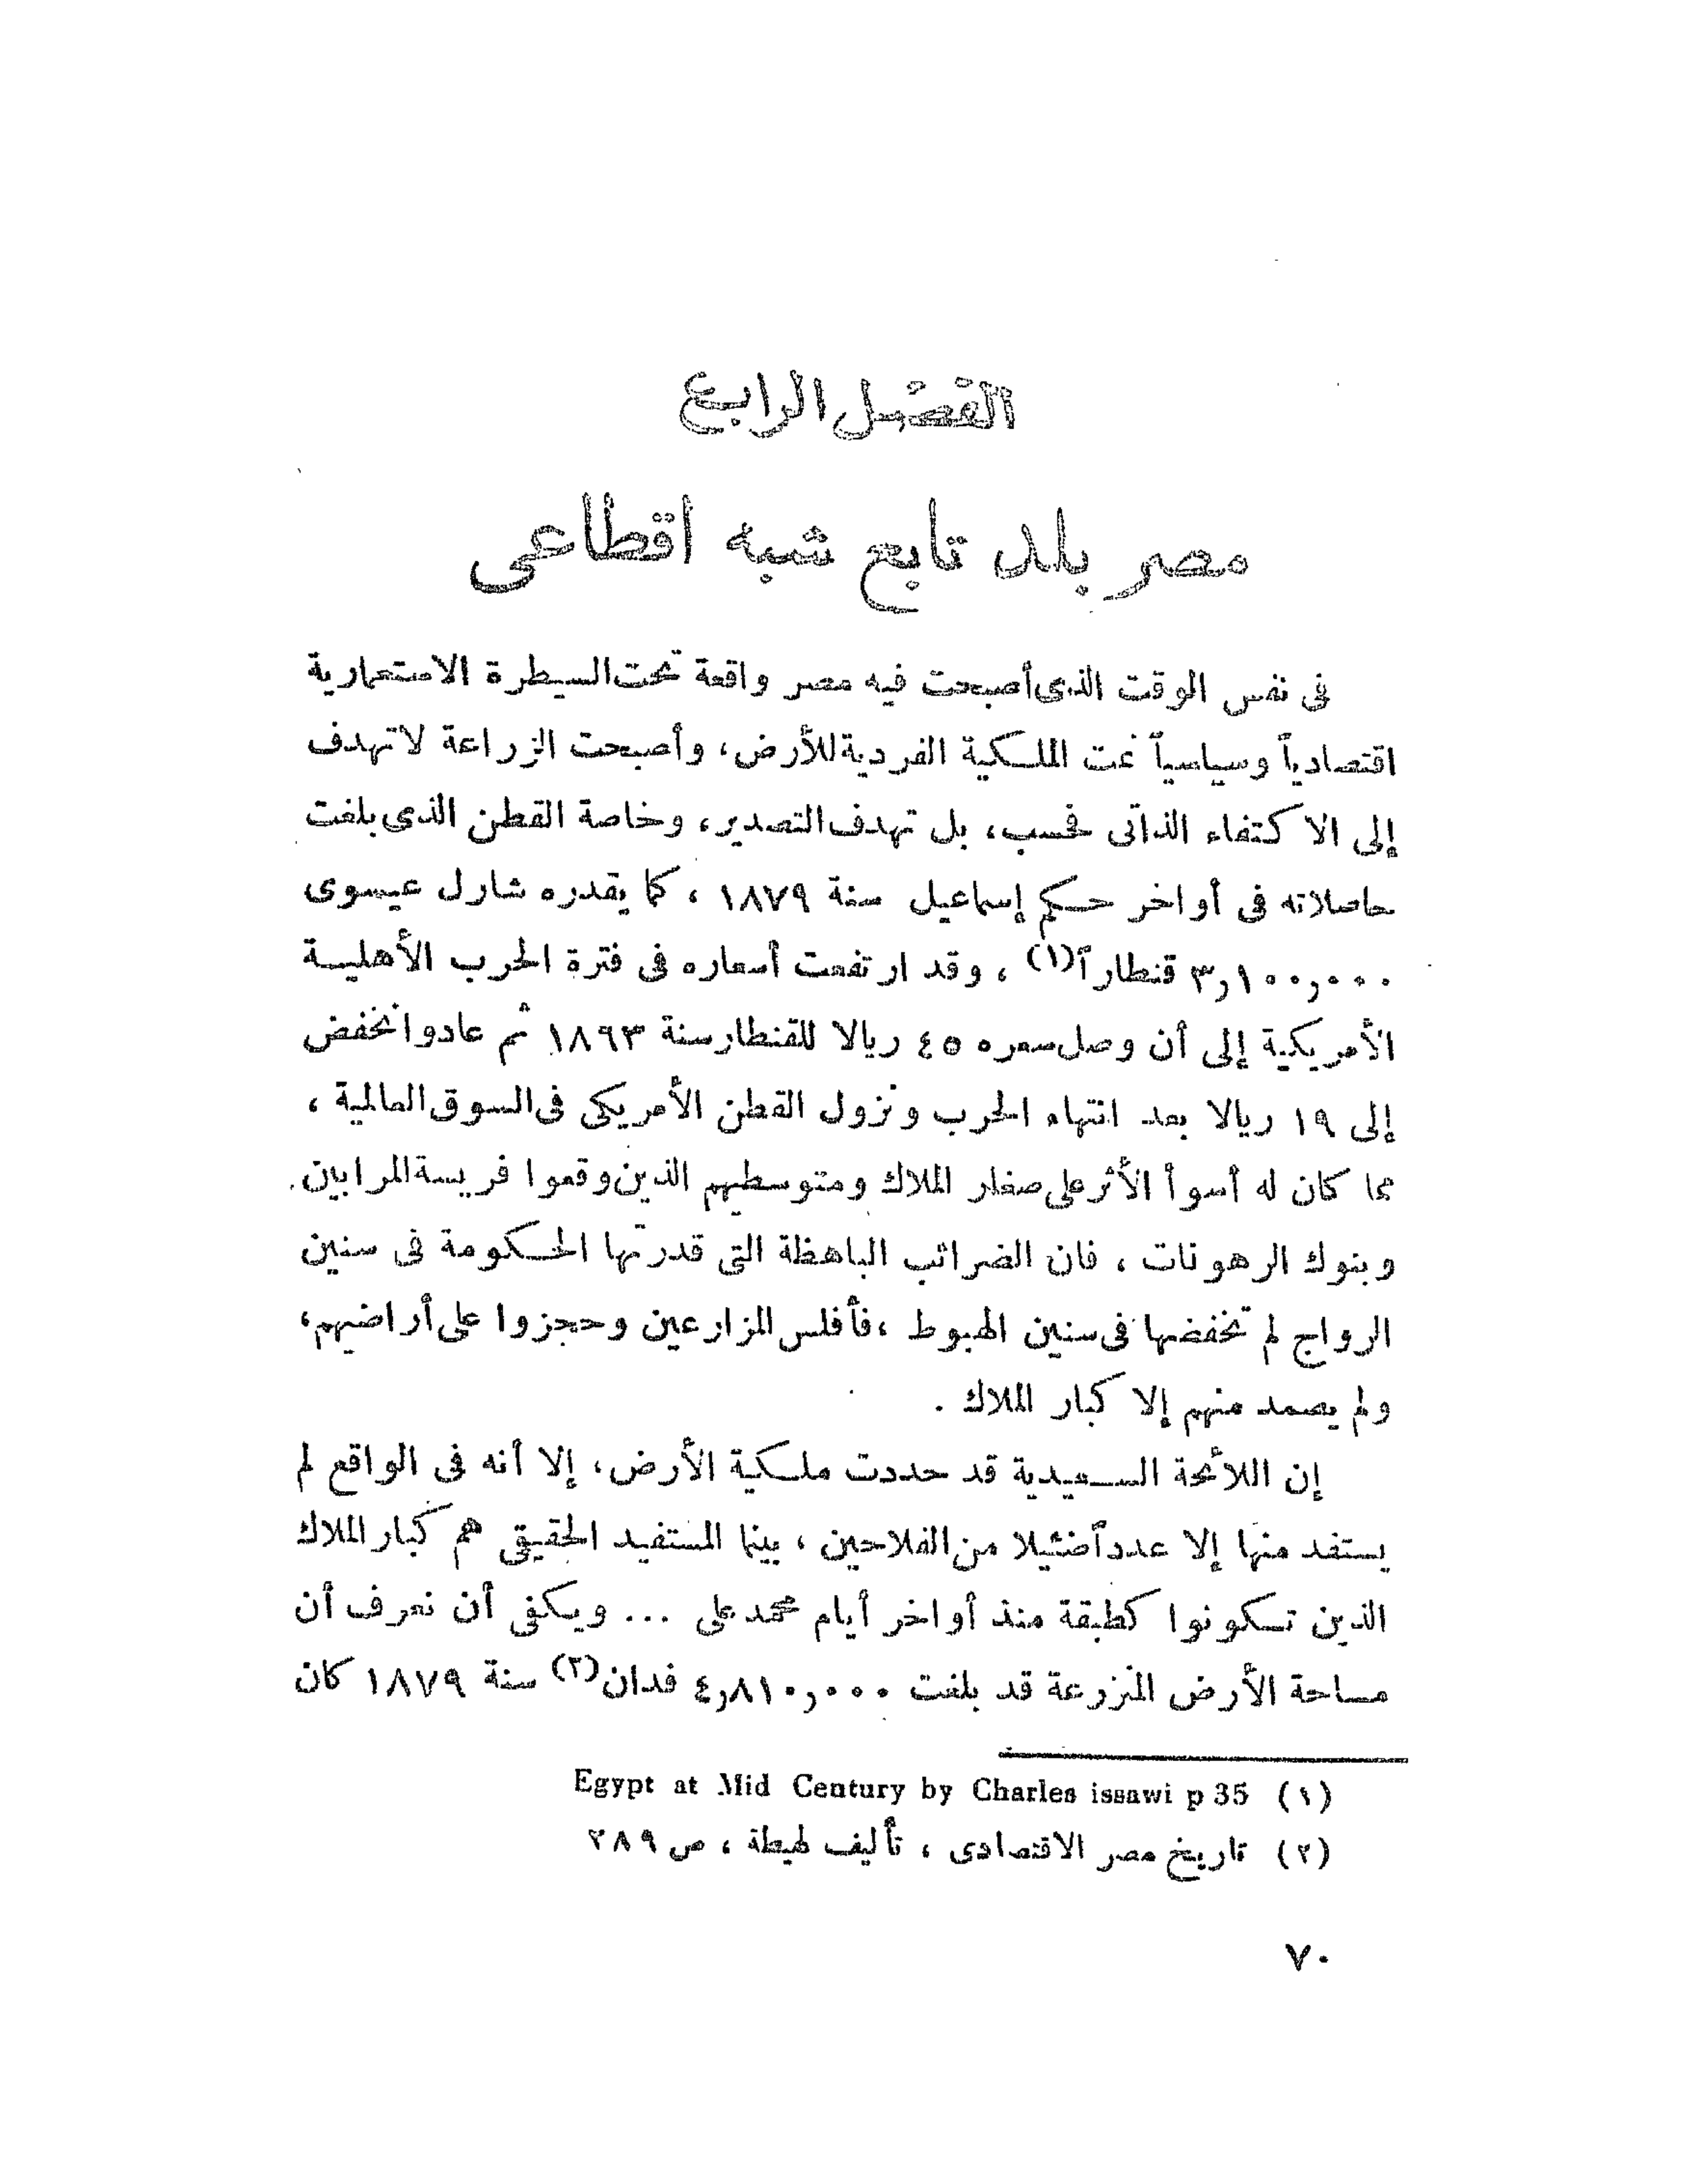 الفصل الرابع
مصر بلد تابع شبه اقطاعى
فى نفس الوقت الذى أصبحت فيه مصر واقعة تحت السيطرة الاستعمارية
اقتصادياً وسياسياً نمت الملكية الفردية للأرض، وأصبحت الزراعة لاتهدف
إلى الاكتفاء الذاتى فحسب، بل تهدف التصدير، وخاصة القطن الذى بلغت
حاصلاته فى أواخر حكم إسماعيل سنة ١٨٧٩ ، كما يقدره شارل عيسوى
٣,١٠٠,٠٠٠ قنطاراً(١) ، وقد ارتفعت أسعاره فى فترة الحرب الأهلية
الأمريكية إلى أن وصل سعره ٤٥ ريالا للقنطار سنة ١٨٦٣ ثم عادوا نخفض
إلى ١٩ ريالا بعد انتهاء الحرب ونزول القطن الأمريكى فى السوق العالمية ،
مما كان له أسوأ الأثر على صغار الملاك ومتوسطيهم الذين وقعوا فريسة المرابين
وبنوك الرهونات ، فان الضرائب الباهظة التى قدرتها الحكومة فى سنين
الرواج لم تخفضها فى سنين الهبوط ، فأفلس المزارعين وحجزوا على أراضيهم،
ولم يصمد منهم إلا كبار الملاك .
إن اللائحة السعيدية قد حددت ملكية الأرض، إلا أنه فى الواقع لم
يستفد منها إلا عدداً ضئيلا من الفلاحين ، بينما المستفيد الحقيقى هم كبار الملاك
الذين تكونوا كطبقة منذ أواخر أيام محمد على ... ويكفى أن نعرف أن
مساحة الأرض المنزرعة قد بلغت ٤,٨١٠,٠٠٠ فدان(٢) سنة ١٨٧٩ كان
(١) Egypt at Mid Century by Charles issawi p 35
(٢) تاريخ مصر الاقتصادى ، تأليف لهيطة ، ص ٢٨٩
٧٠